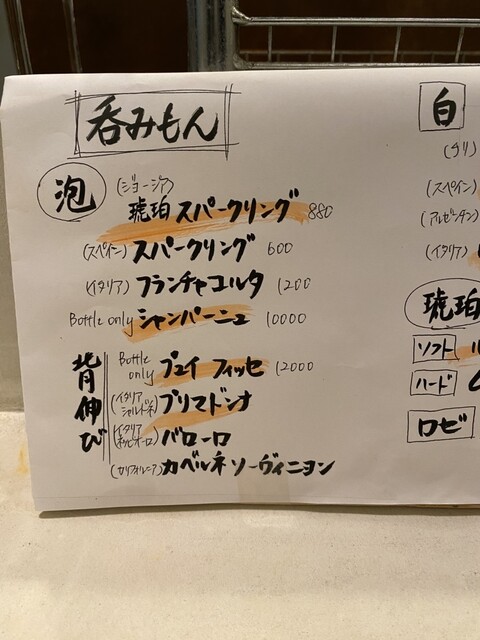 呑みもん
泡
(ジョージア)
琥珀 スパークリング 880
(スペイン) スパークリング 600
(イタリア) フランチャコルタ 1200
Bottle only シャンパーニュ 10000
背伸び
Bottle only プュイ フィッセ 12000
(イタリア シャルドネ) プリマドンナ
(イタリア ネッビオーロ) バローロ
(カリフォルニア) カベルネ ソーヴィニヨン
白
(チリ)
(スペイン)
(アルゼンチン)
(イタリア)
琥珀
ソフト
ハード
ロゼ